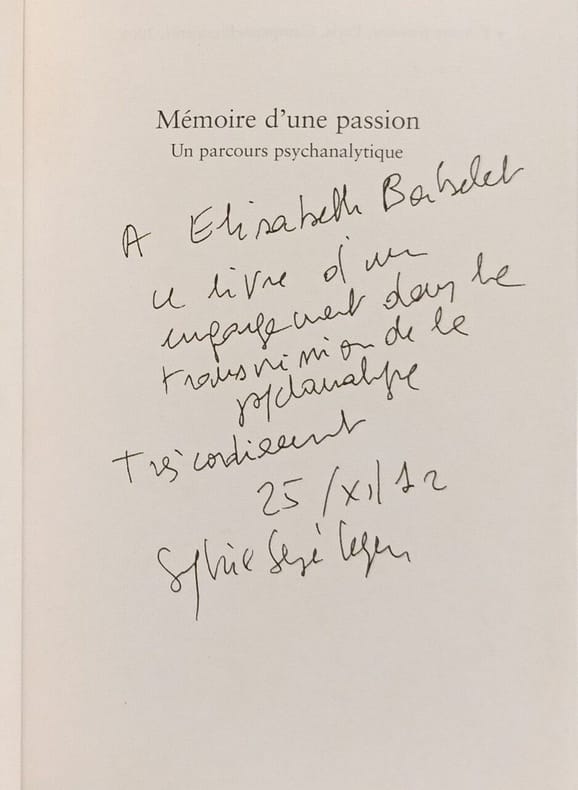 Mémoire d'une passion
Un parcours psychanalytique
A Elisabeth
ce livre d'un
engagement dans la
transmission de la
psychanalyse
Très cordialement
25/XI/12
Sylvie Sesé-Léger